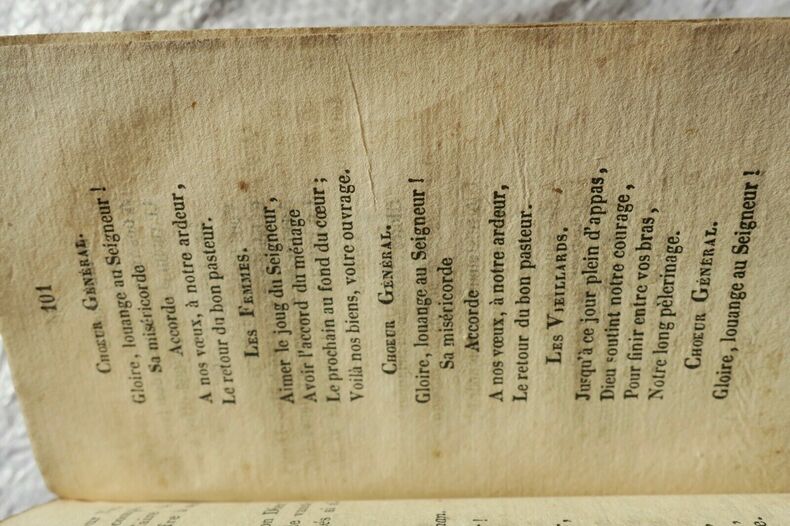 101
CHŒUR GÉNÉRAL.
Gloire, louange au Seigneur !
Sa miséricorde
Accorde
A nos vœux, à notre ardeur,
Le retour du bon pasteur.
LES FEMMES.
Aimer le joug du Seigneur,
Avoir l'accord du ménage
Le prochain au fond du cœur ;
Voilà nos biens, votre ouvrage.
CHŒUR GÉNÉRAL.
Gloire, louange au Seigneur !
Sa miséricorde
Accorde
A nos vœux, à notre ardeur,
Le retour du bon pasteur.
LES VIEILLARDS.
Jusqu'à ce jour plein d'appas,
Dieu soutint notre courage,
Pour finir entre vos bras,
Notre long pèlerinage.
CHŒUR GÉNÉRAL.
Gloire, louange au Seigneur !